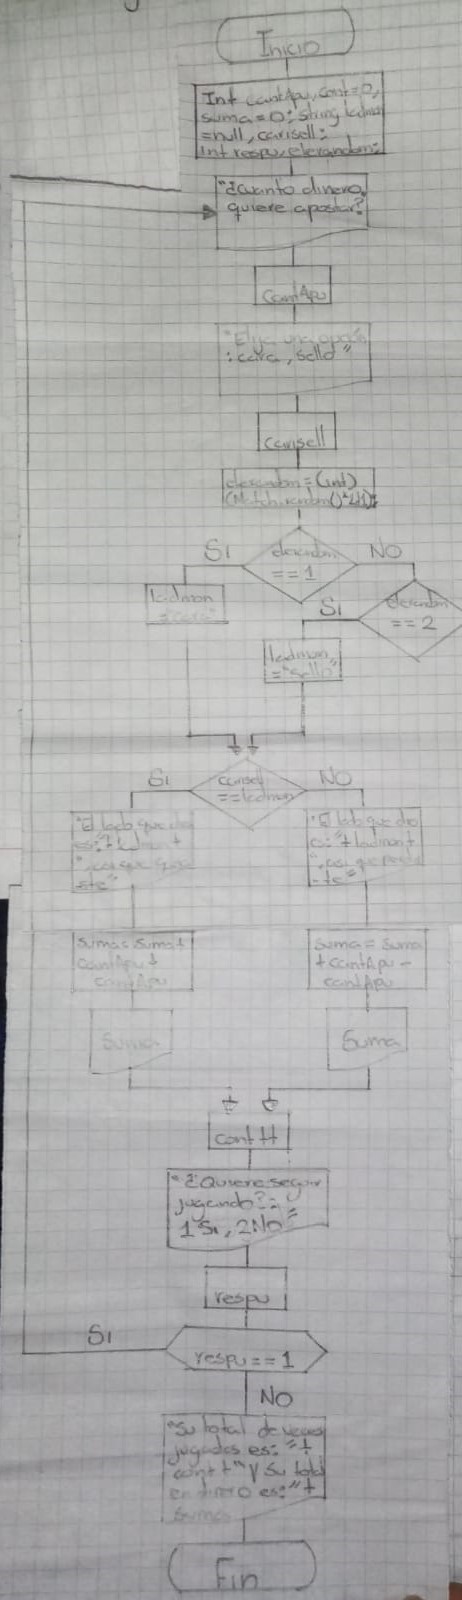 Inicio
Int cantApu, cont=0,
suma=0; string ladmon
=null, carisell;
int respu, elerandom;
"¿Cuanto dinero
quiere apostar?
CantApu
"Elija una opción
: cara, sello"
carisell
elerandom=(int)
(Math.random()*2+1);
SI
elerandom
==1
NO
ladmon
="cara"
SI
elerandom
==2
ladmon
="sello"
SI
carisell
==ladmon
NO
"El lado que dio
es:"+ladmon+
", asi que gana
-ste"
"El lado que dio
es:"+ladmon+
", asi que perdis
-te"
suma=suma+
cantApu+
cantApu
suma=suma
+cantApu-
cantApu
Suma
Suma
cont++
"¿Quiere seguir
jugando?:
1 Si, 2 No"
respu
SI
respu==1
NO
"Su total de veces
jugadas es: "+
cont+" y su total
en dinero es:"+
suma
Fin